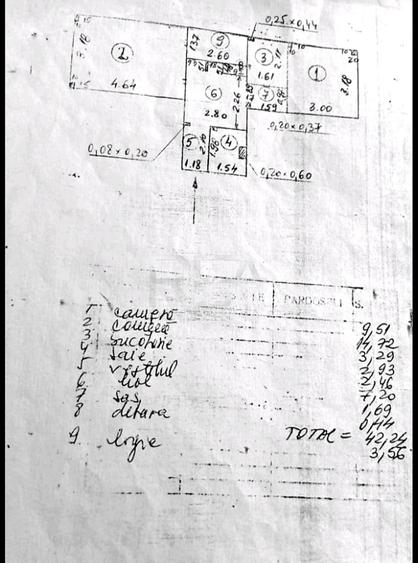 0,25 x 0,44
9
2
1,37
2.60
3
2.11
1
5.18
3.18
1.61
4.64
6
7
2.26
2.80
1.59
3.00
0,20 x 0,37
0,08 x 0,20
5
2.10
4
1.90
1.18
1.54
0,20 x 0,60
PARDOSELI S.
1 camera 9,51
2 camera 14,72
3 bucatarie 3,29
4 baie 2,93
5 vestibul 2,46
6 hol 7,20
7 sas 1,69
8 debara 0,44
TOTAL = 42,24
9. logie 3,56